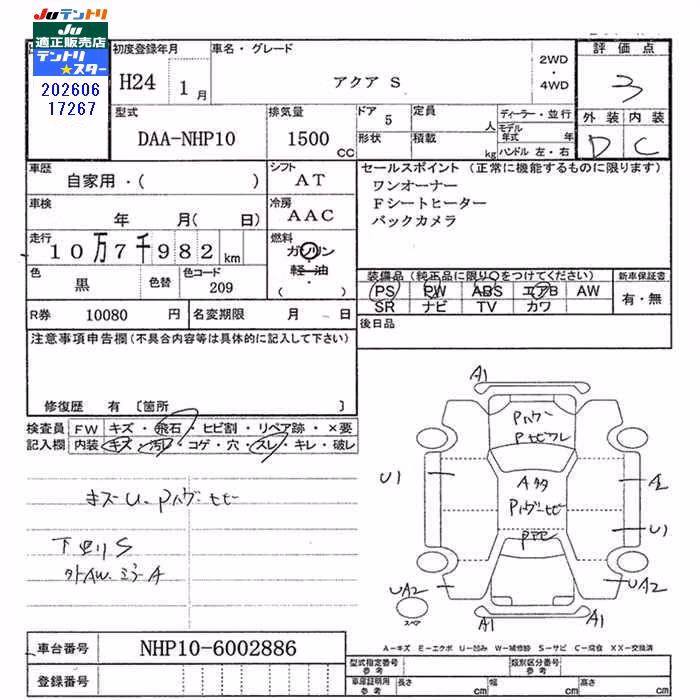 JUテントリ
JU
適正販売店
テントリ
★スター
202606
17267
初度登録年月
H24 1月
車名・グレード
アクア S
2WD
・
4WD
評価点
3
外装 内装
D C
型式
DAA-NHP10
排気量
1500 CC
ドア
5
形状
定員
人
積載
kg
ディーラー・並行
モデル
年式 年
ハンドル 左・右
車歴
自家用・( )
シフト
AT
車検
年 月( 日)
冷房
AAC
走行
10万7千982 km
燃料
ガソリン
軽油
( )
色
黒
色替
色コード
209
R券 10080 円
名変期限 月 日
セールスポイント (正常に機能するものに限ります)
ワンオーナー
Fシートヒーター
バックカメラ
装備品(純正品に限り○をつけてください)
PS PW ABS エアB AW
SR ナビ TV カワ
新車保証書
有・無
後日品
注意事項申告欄(不具合内容等は具体的に記入して下さい)
修復歴 有 〔箇所 〕
検査員 FW キズ・飛石・ヒビ割・リペア跡・×要
記入欄 内装 キズ・汚レ・コゲ・穴・スレ・キレ・破レ
キズU.Pハゲ・ヒビ
下廻りS
外AW.ミラーA
A1
Pハゲ
U1
Aタタ
Pハゲーヒビ
U1
UA2
UA2
スペア
A1
A1
A-キズ E-エクボ U-凹み W-補修跡 S-サビ C-腐食 XX-交換済
車台番号 NHP10-6002886
登録番号
型式指定番号 類別区分番号
参考 参考
車庫証明用
参考
長さ cm 幅 cm 高さ cm